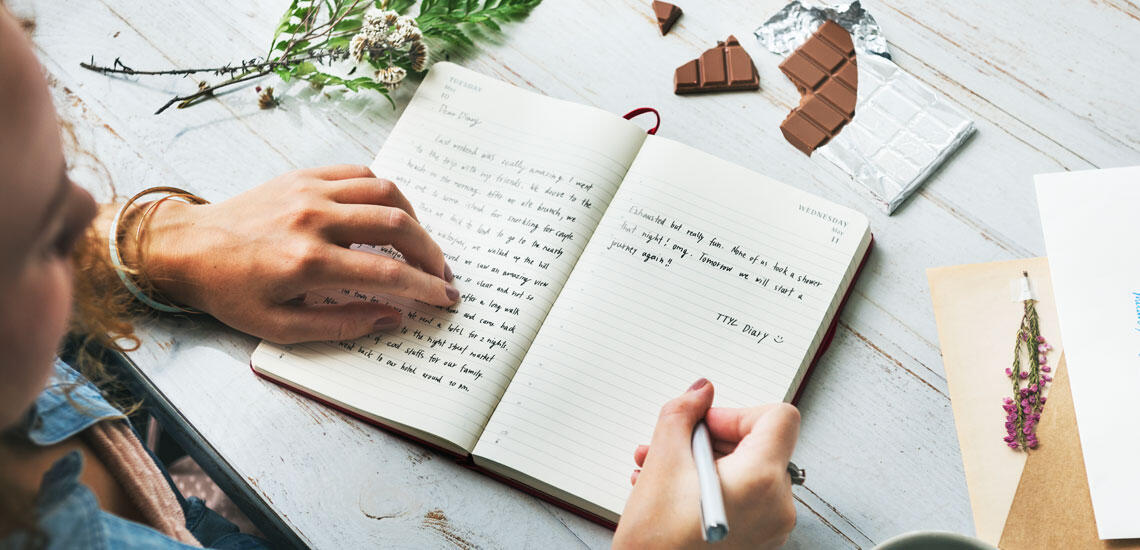 TUESDAY
May
10
Dear Diary
Last weekend was really amazing. I went
to the trip with my friends. We drove to the
beach in the morning. After we ate brunch, we
went to some island for snorkling for couple
we had to go to the nearby
waterfalls, we walked up the hill
we saw an amazing view
was so clear and not so
after a long walk
and came back
town for We rent a hotel for 2 nights.
to the night street market
of cool staffs for our family.
went back to our hotel around 10 pm.
WEDNESDAY
May
11
Exhausted but really fun. None of us took a shower
that night! omg. Tomorrow we will start a
journey again!!
TTYL Diary